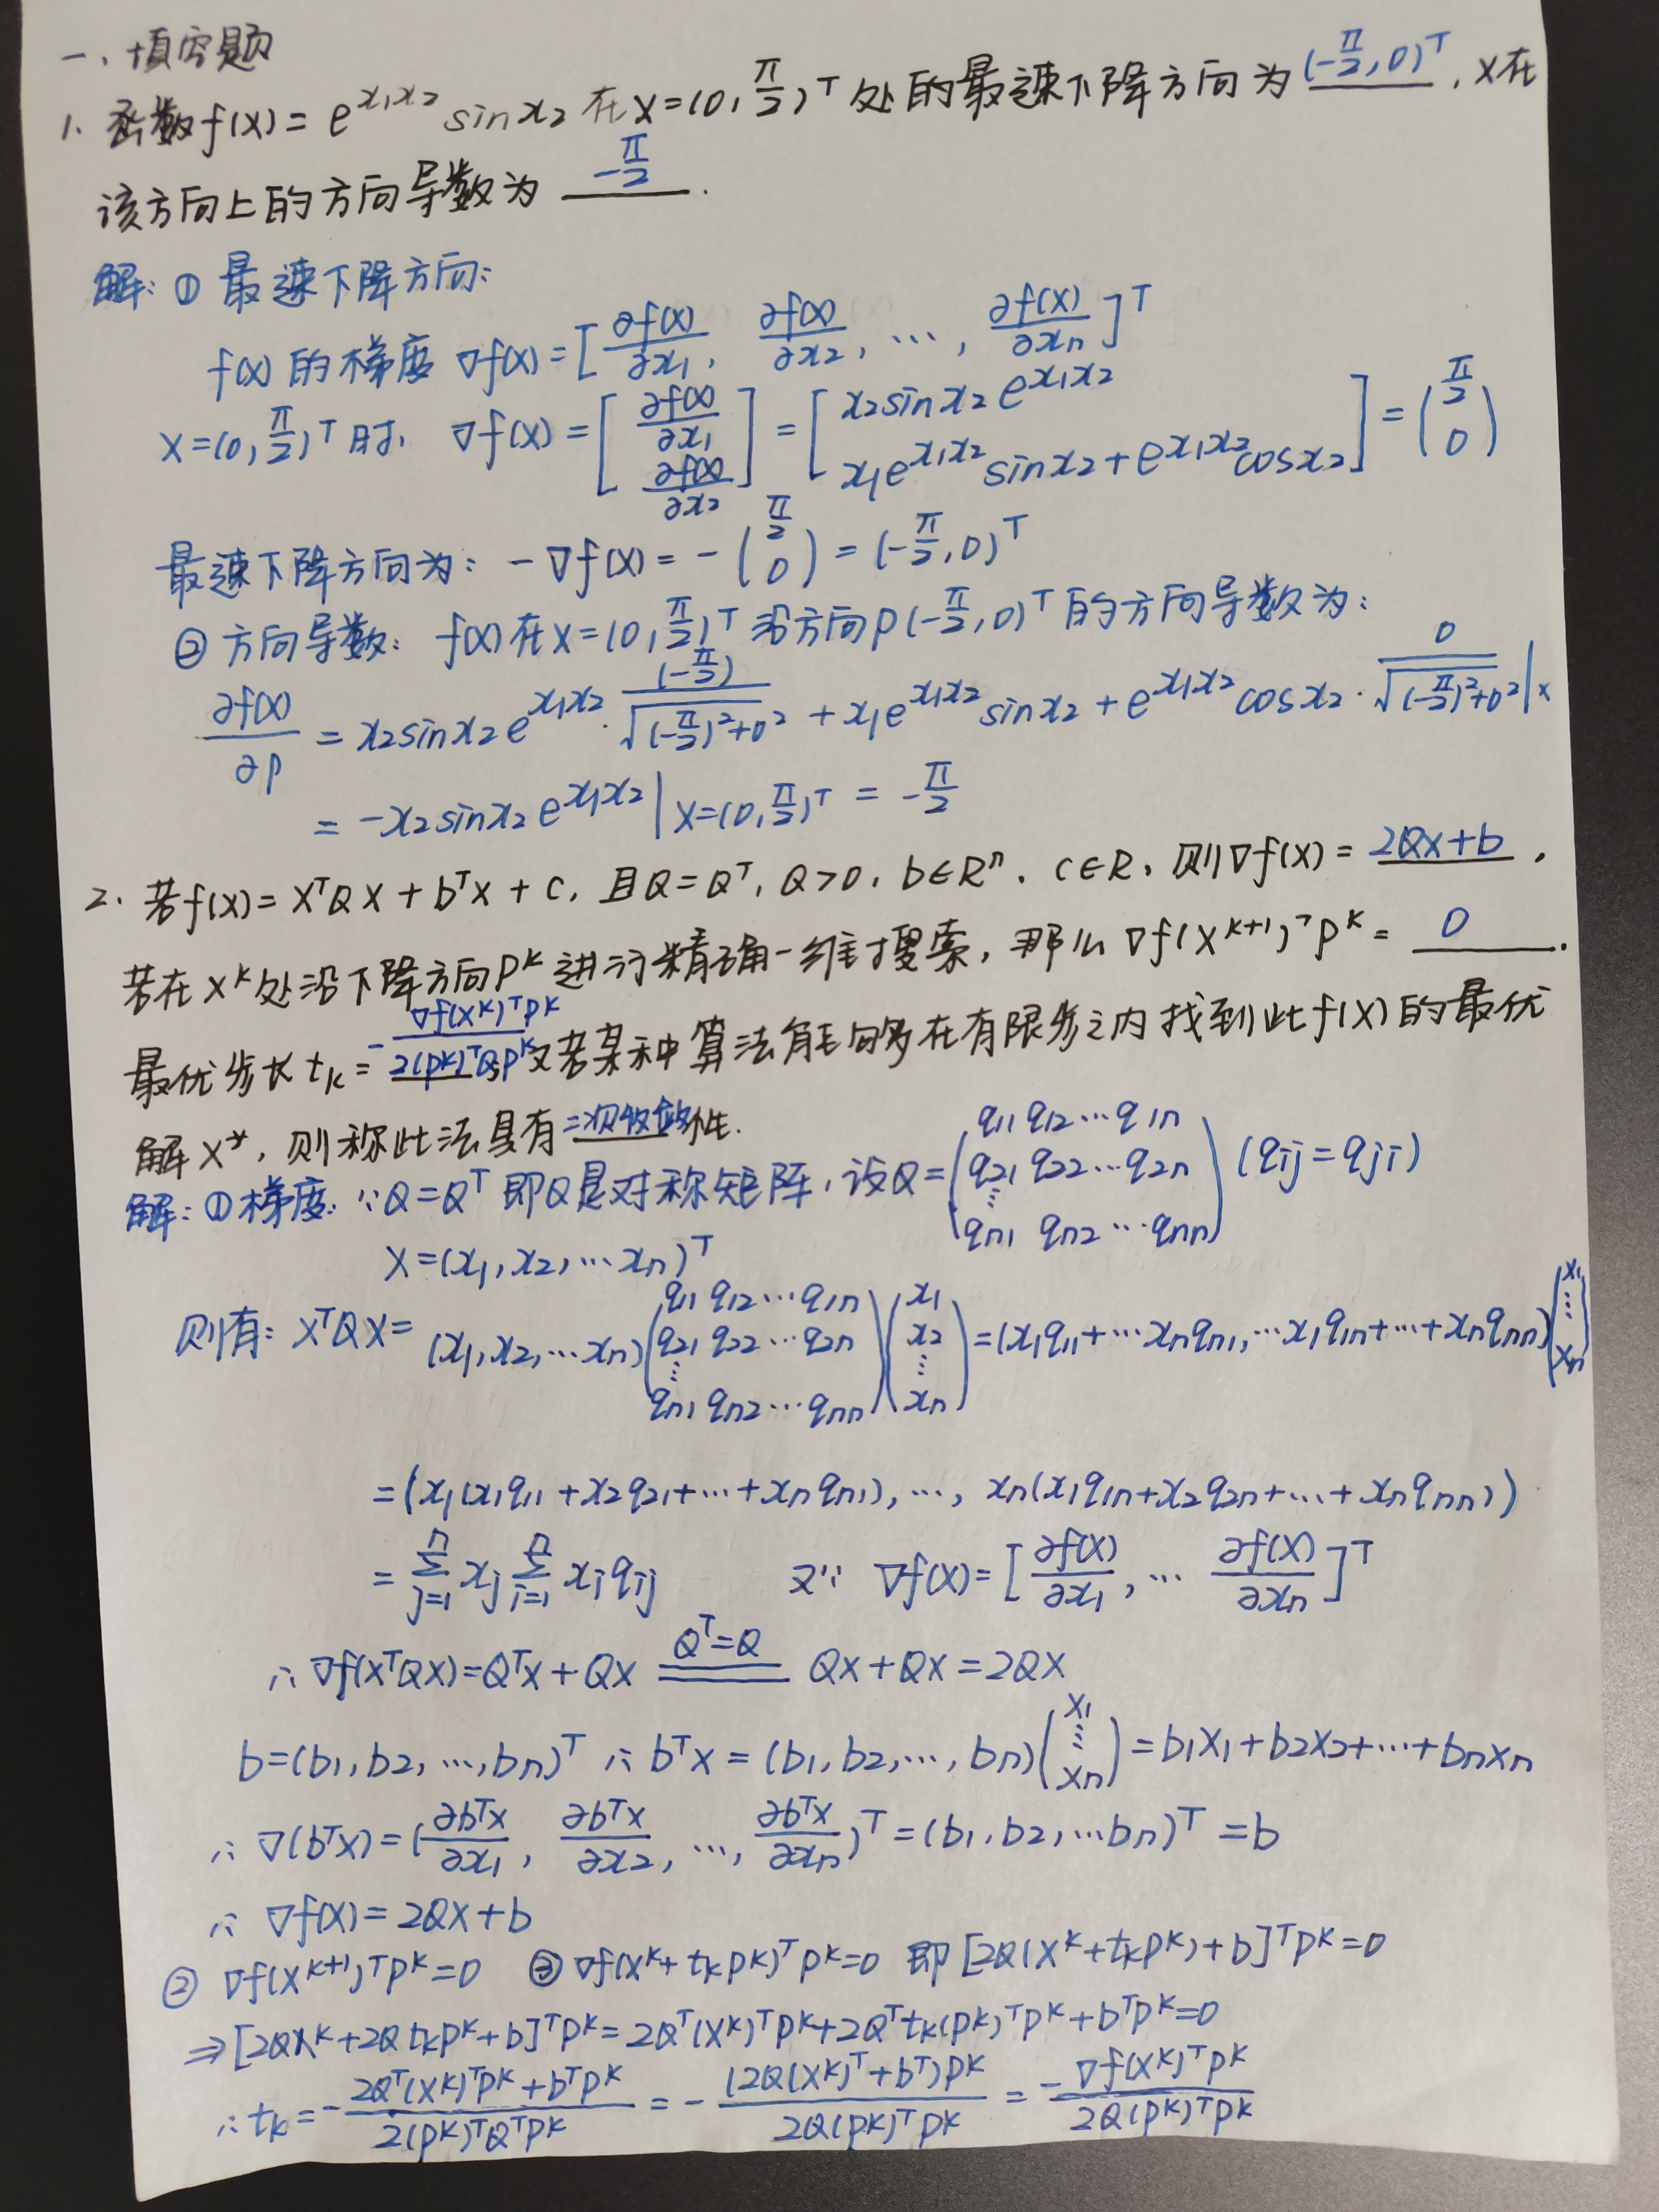 一、填空题
1. 函数f(X)= e^{x₁x₂} sinx₂ 在X=(0, π/2)ᵀ 处的最速下降方向为 (-π/2, 0)ᵀ , X在
该方向上的方向导数为 -π/2 .
解: ① 最速下降方向:
f(X) 的梯度 ∇f(X)=[∂f(X)/∂x₁, ∂f(X)/∂x₂, ..., ∂f(X)/∂xₙ]ᵀ
X=(0, π/2)ᵀ 时, ∇f(X)=[∂f(X)/∂x₁ ; ∂f(X)/∂x₂] = [x₂sinx₂ e^{x₁x₂} ; x₁e^{x₁x₂} sinx₂+e^{x₁x₂}cosx₂] = (π/2 ; 0)
最速下降方向为: -∇f(X) = -(π/2 ; 0) = (-π/2, 0)ᵀ
② 方向导数: f(X)在X=(0, π/2)ᵀ 沿方向P(-π/2, 0)ᵀ 的方向导数为:
∂f(X)/∂P = x₂sinx₂ e^{x₁x₂} · (-π/2)/√((-π/2)²+0²) + x₁e^{x₁x₂} sinx₂ + e^{x₁x₂} cosx₂ · 0/√((-π/2)²+0²) |x
= -x₂sinx₂ e^{x₁x₂} | X=(0, π/2)ᵀ = -π/2
2. 若f(X)= XᵀQX + bᵀX + C, 且Q=Qᵀ, Q>0, b∈Rⁿ, C∈R, 则∇f(X)= 2QX+b ,
若在Xᵏ处沿下降方向Pᵏ进行精确一维搜索, 那么 ∇f(Xᵏ⁺¹)ᵀPᵏ= 0 .
最优步长 tₖ= -∇f(Xᵏ)ᵀPᵏ/2(Pᵏ)ᵀQPᵏ ; 又若某种算法能够在有限步之内找到此f(X)的最优
解X*, 则称此法具有二次收敛性.
解: ①梯度: ∵Q=Qᵀ 即Q是对称矩阵, 设Q=(q₁₁ q₁₂ ... q₁ₙ ; q₂₁ q₂₂ ... q₂ₙ ; ⋮ ; qₙ₁ qₙ₂ ... qₙₙ) (qᵢⱼ=qⱼᵢ)
X=(x₁, x₂, ... xₙ)ᵀ
则有: XᵀQX= (x₁, x₂, ... xₙ)(q₁₁ q₁₂ ... q₁ₙ ; q₂₁ q₂₂ ... q₂ₙ ; ⋮ ; qₙ₁ qₙ₂ ... qₙₙ)(x₁ ; x₂ ; ⋮ ; xₙ)=(x₁q₁₁+...xₙqₙ₁, ...x₁q₁ₙ+...+xₙqₙₙ)(x₁ ; ⋮ ; xₙ)
=(x₁(x₁q₁₁ + x₂q₂₁+...+xₙqₙ₁), ..., xₙ(x₁q₁ₙ+x₂q₂ₙ+...+xₙqₙₙ))
= Σⁿⱼ₌₁ xⱼ Σⁿᵢ₌₁ xᵢqᵢⱼ 又∵ ∇f(X)=[∂f(X)/∂x₁, ... ∂f(X)/∂xₙ]ᵀ
∴ ∇f(XᵀQX)=QᵀX+QX =(Qᵀ=Q)= QX+QX=2QX
b=(b₁, b₂, ..., bₙ)ᵀ ∴ bᵀX = (b₁, b₂, ..., bₙ)(x₁ ; ⋮ ; xₙ)=b₁x₁+b₂x₂+...+bₙxₙ
∴ ∇(bᵀX)=(∂bᵀX/∂x₁, ∂bᵀX/∂x₂, ..., ∂bᵀX/∂xₙ)ᵀ=(b₁, b₂, ...bₙ)ᵀ =b
∴ ∇f(X)=2QX+b
② ∇f(Xᵏ⁺¹)ᵀPᵏ=0 ③ ∇f(Xᵏ+tₖPᵏ)ᵀPᵏ=0 即 [2Q(Xᵏ+tₖPᵏ)+b]ᵀPᵏ=0
⇒[2QXᵏ+2QtₖPᵏ+b]ᵀPᵏ=2Qᵀ(Xᵏ)ᵀPᵏ+2Qᵀtₖ(Pᵏ)ᵀPᵏ+bᵀPᵏ=0
∴tₖ=-2Qᵀ(Xᵏ)ᵀPᵏ+bᵀPᵏ/2(Pᵏ)ᵀQᵀPᵏ = -(2Q(Xᵏ)ᵀ+bᵀ)Pᵏ/2Q(Pᵏ)ᵀPᵏ = -∇f(Xᵏ)ᵀPᵏ/2Q(Pᵏ)ᵀPᵏ